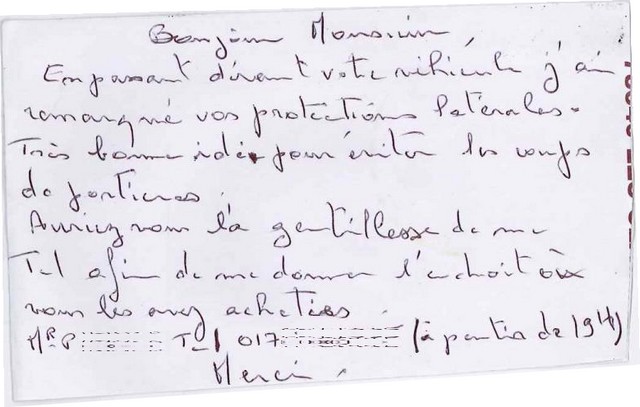 Bonjour Monsieur,
En passant devant votre véhicule j'ai
remarqué vos protections latérales.
Très bonne idée pour éviter les coups
de portières.
Auriez vous la gentillesse de me
Tel afin de me donner l'endroit où
vous les avez achetées.
Mr P Tel 017 (à partir de 19H)
Merci.